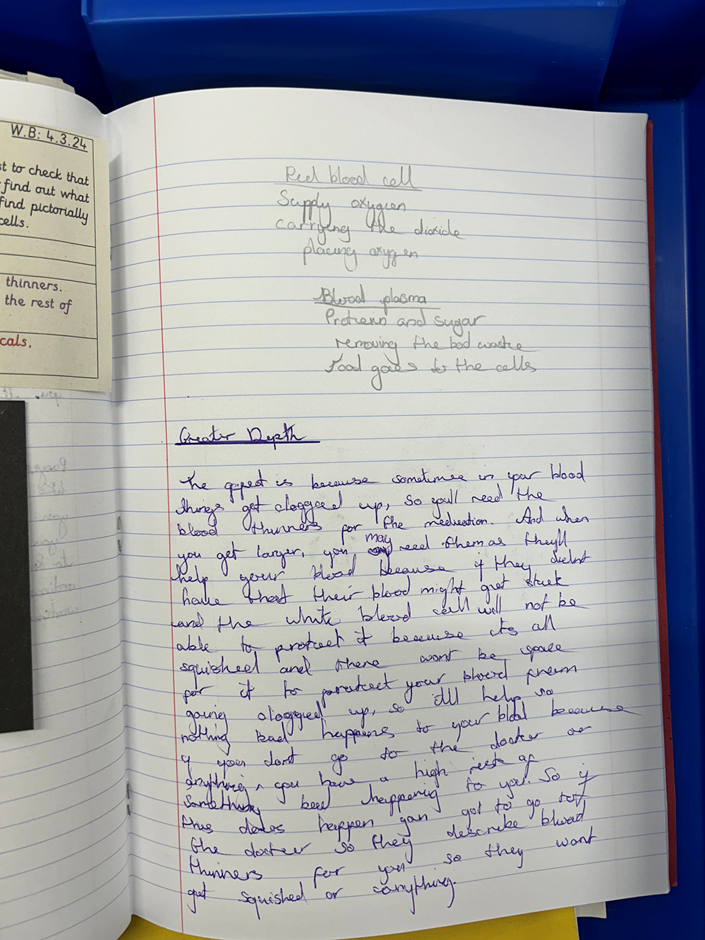 W.B: 4.3.24
st to check that
find out what
find pictorially
cells.
thinners.
the rest of
cals.
Red blood cell
Supply oxygen
carrying the dioxide
placing oxygen
Blood plasma
Protein and sugar
removing the bad waste
Food goes to the cells
Greater Depth
The is because sometimes in your blood
things get cloggged up, so you'll need the
blood thinners for the medication. And when
you get larger, you may need them as they'll
help your blood because if they didnt
have that their blood might get stuck
and the white blood cell will not be
able to protect it because its all
squished and there wont be space
for it to protect your blood from
going cloggged up, so itll help so
nothing bad happens to your blood because
if your dont go to the doctor or
anything you have a high of
something bad happening to you. So if
this does happen got to go to
the docter so they describe blood
thinners for you so they wont
get squished or anything.